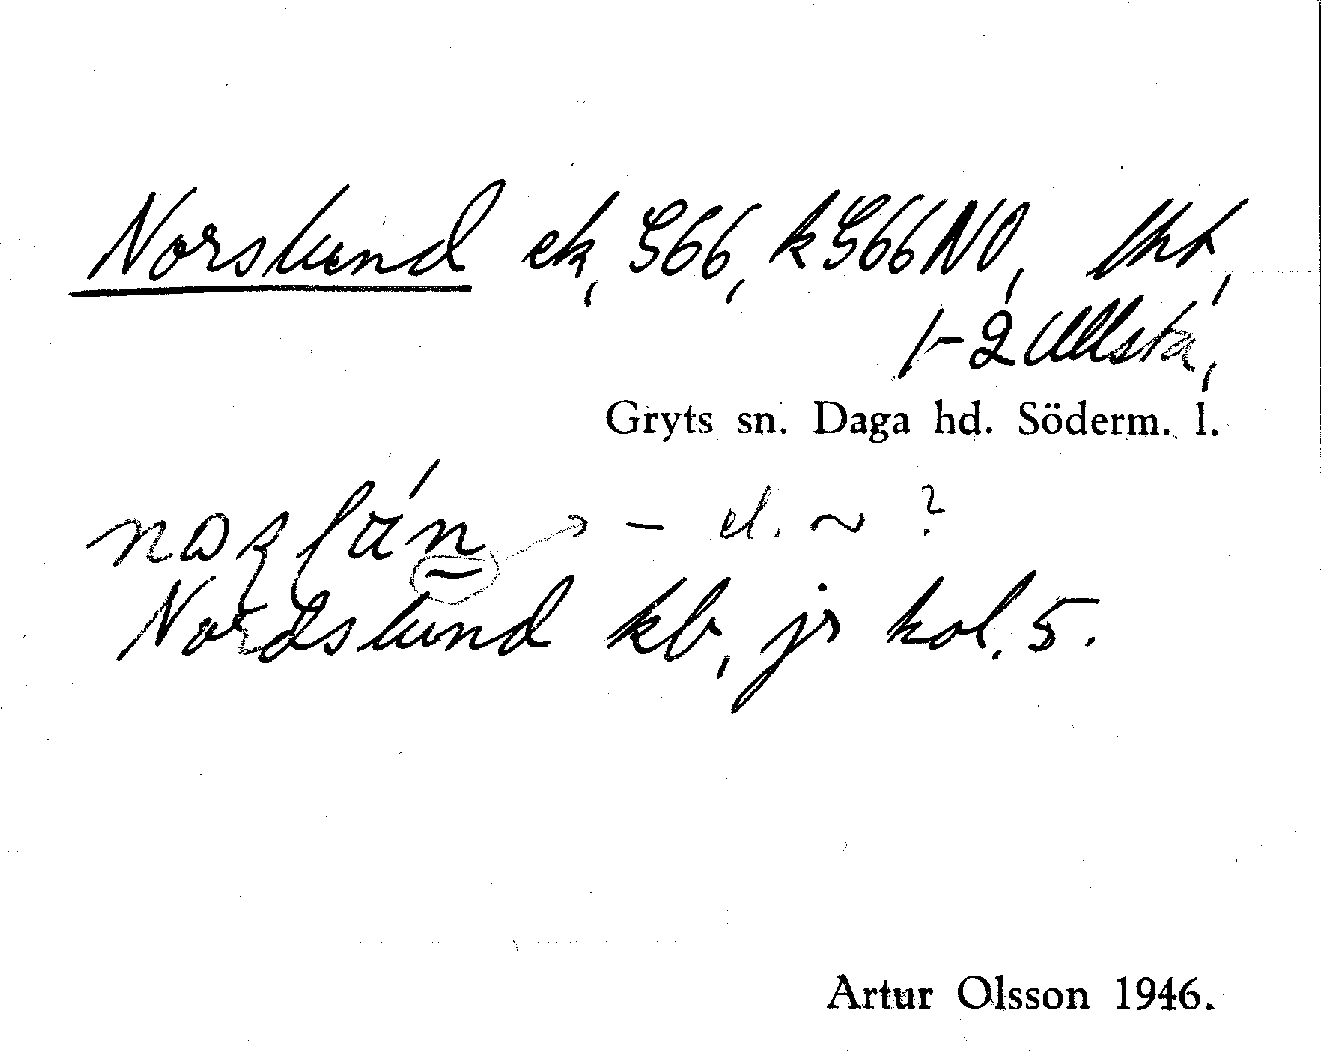 Norslund ek, S66, kS66NO, lht,
1-2 Ullsta,
Gryts sn. Daga hd. Söderm. l.
— el. ~ ?
Nordslund kb, jr kol. 5.
Artur Olsson 1946.